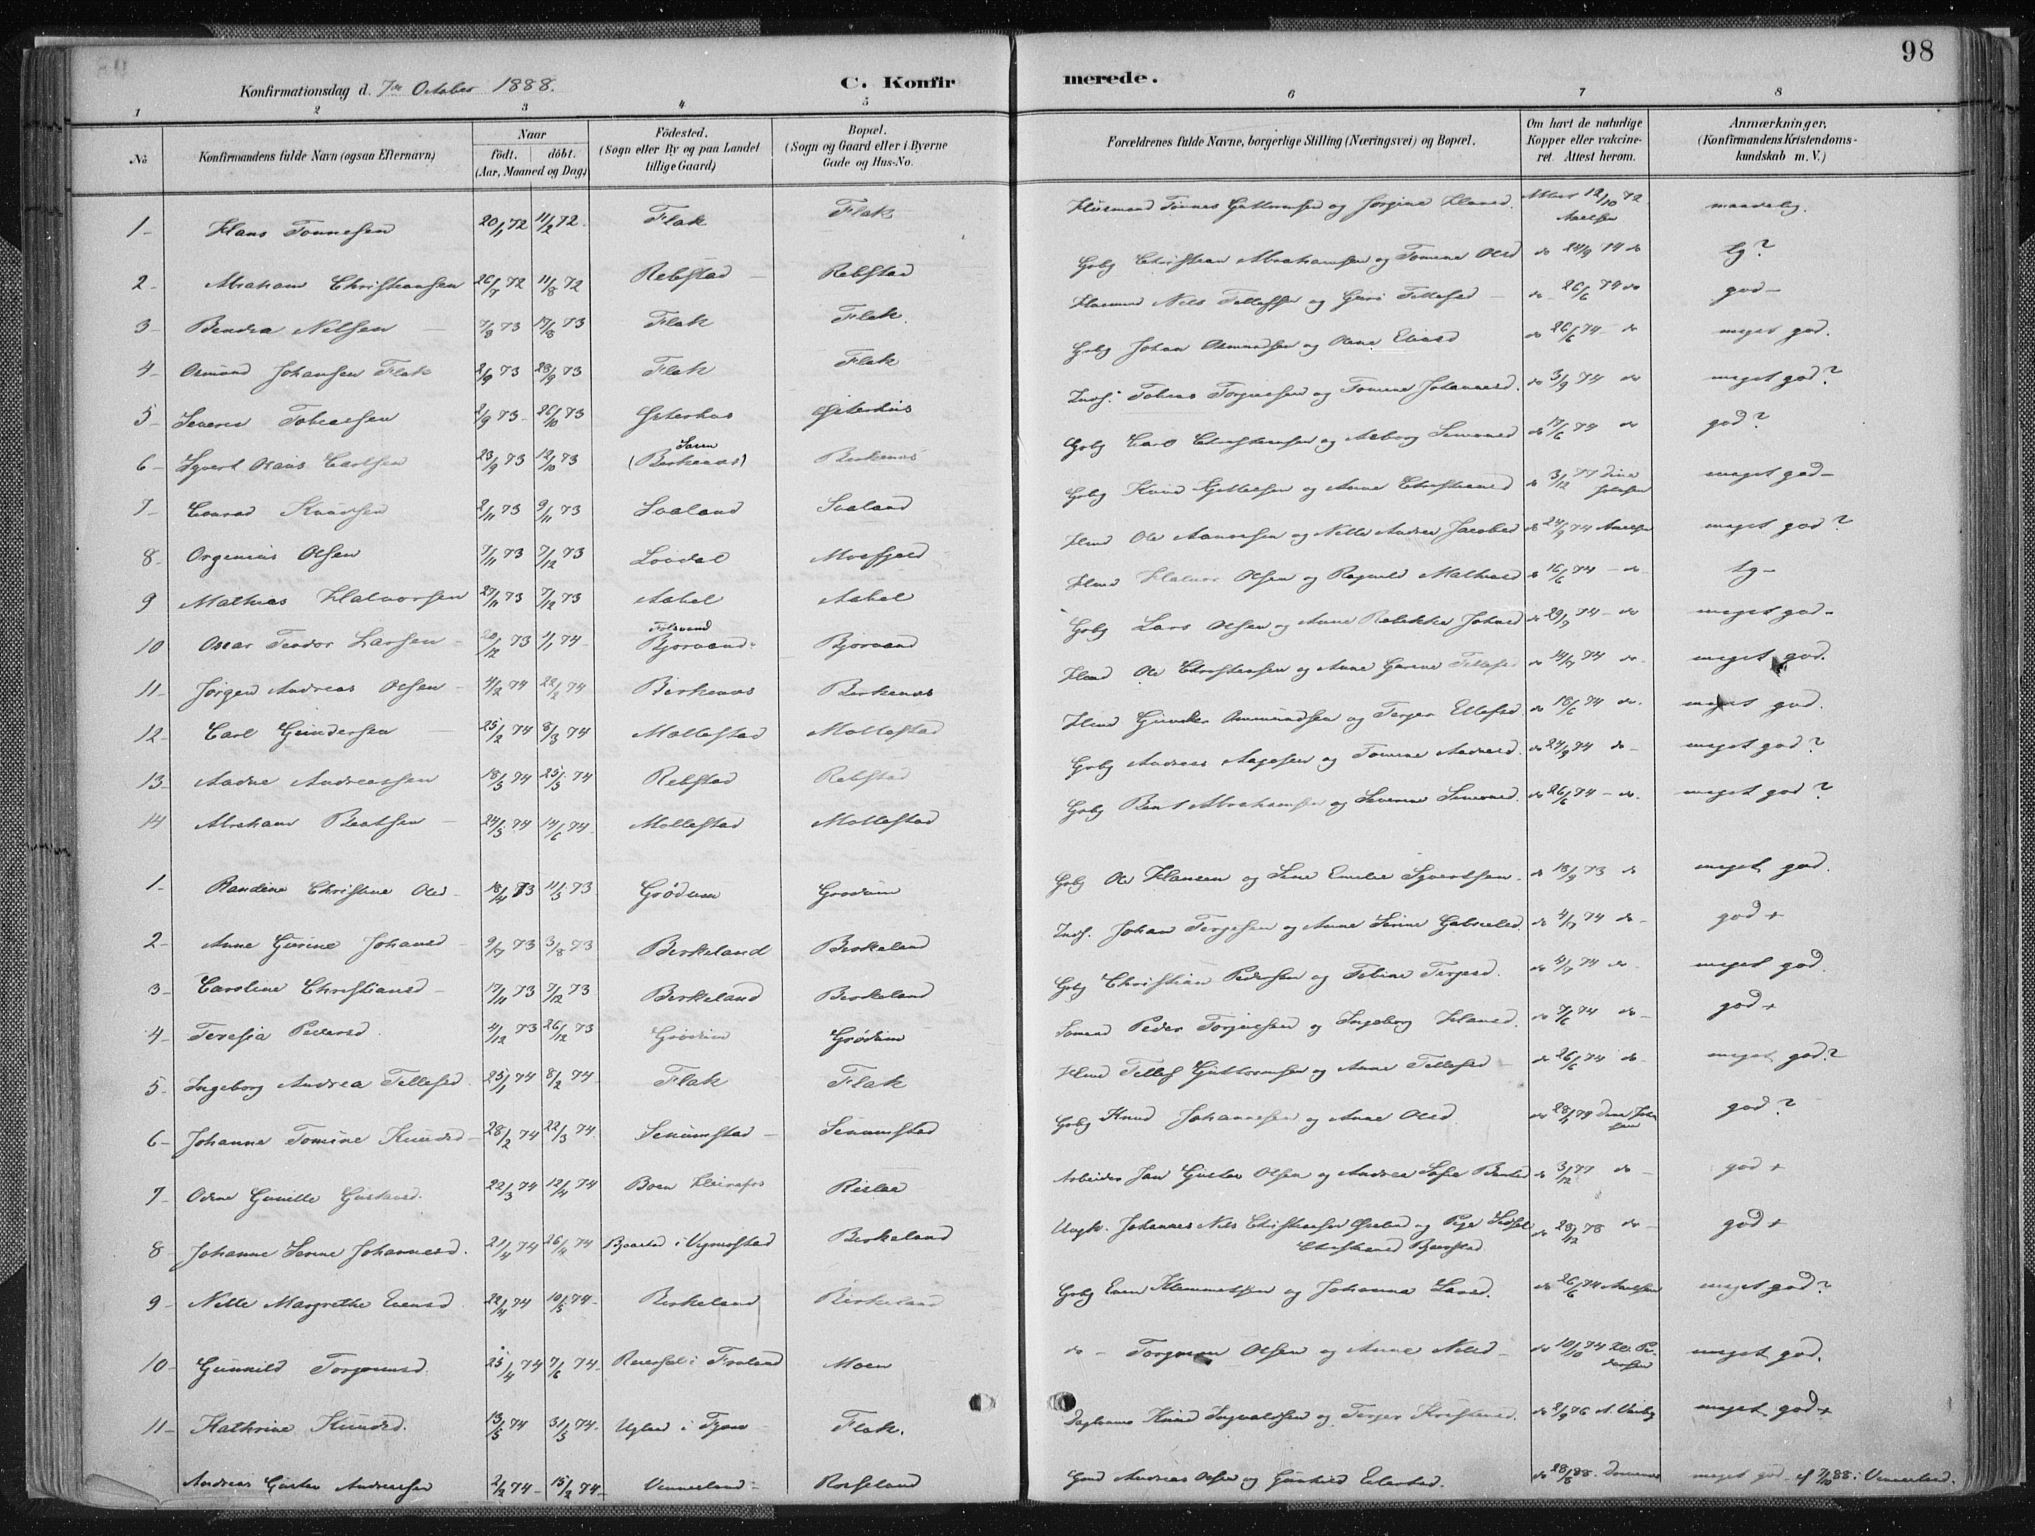 98
Konfirmationsdag d. 7de October 1888.
C. Konfirmerede.
1 2 3 4 5 6 7 8
No
Konfirmandens fulde Navn (ogsaa Efternavn)
Naar
födt. döbt.
(Aar, Maaned og Dag)
Födested.
(Sogn eller By og paa Landet
tillige Gaard)
Bopæl.
(Sogn og Gaard eller i Byerne
Gade og Hus-No.
Forældrenes fulde Navne, borgerlige Stilling (Næringsvei) og Bopæl.
Om havt de naturlige
Kopper eller vakcine-
ret. Attest herom.
Anmærkninger,
(Konfirmandens Kristendoms-
kundskab m. V.)
1 Hans Tønnesen 20/1 72 11/2 72 Flak Flak Husmand Tønnes Guttormsen og Jørgine Hansd. Attest 12/10 72 Axelsen maadelig.
2 Abraham Christiansen 26/7 72 11/8 72 Rebstad Rebstad Gbg Christian Abrahamsen og Tomine Olsd do 24/9 74 do tg?
3 Bendix Nilsen 7/8 73 17/8 73 Flak Flak. Husmand Nils Tellefsen og Guri Tellefsd do 26/6 74 do god
4 Osmund Johansen Flak 2/9 73 28/9 73 Flak Flak Gbg Johan Osmundsen og Olene Eliasd do 26/6 74 do meget god.
5 Severin Tobiassen 2/9 73 26/10 73 Østerhus Østerhus Inds. Tobias Torjussen og Tomine Johannesd. do 3/9 74 do meget god?
6 Syvert Olaus Carlsen 23/9 73 12/10 73 (Birkenæs) Birkenæs Gbg Carl Christensen og Aaborg Simonsd do 17/6 74 do god?
7 Conrad Knudsen 2/11 73 9/11 73 Svaland Svaland Gbg Knud Gjettesen og Anne Christiansd do 3/12 77 meget god
8 Orgenius Olsen 7/11 73 7/12 73 Lovdal Mosfjeld Hmd Ole Aanonsen og Nille Andrea Jacobsd do 24/9 74 Axelsen meget god?
9 Mathias Halvorsen 27/11 73 7/12 73 Aabel Aabel Hmd Halvor Olsen og Ragnild Mathiasd do 16/6 74 do tg
10 Oscar Teodor Larsen 20/12 73 1/1 74 Bjorvand Bjorvand Gbg Lars Olsen og Anne Rebekka Johnsd do 29/9 74 do meget god
11 Jørgen Andreas Olsen 4/2 74 22/2 74 Birkenæs Birkenæs Hmd Ole Christensen og Anne Gurine Tellefsd do 14/7 74 do meget god.
12 Carl Gundersen 25/2 74 8/3 74 Mollestad Mollestad Hmd Gunder Ommundsen og Terjer Ellefsd. do 18/6 74 do meget god.
13 Aadne Andreassen 18/3 74 25/3 74 Rebstad Rebstad Gbg Andreas Aagesen og Tomine Aadnesd do 24/9 74 do meget god?
14 Abraham Bentsen 24/3 74 14/6 74 Mollestad Mollestad Gbg Bent Abrahamsen og Severine Simonsd. do 26/6 74 do meget god?
1 Randine Christine Olsd 18/4 73 11/5 73 Grødum Grødum Gbg Ole Hansen og Sine Emilie Syvertsen do 18/9 73 do meget god.
2 Anne Gurine Johansd 9/7 73 3/8 73 Birkeland Birkeland Inds. Johan Terjesen og Anne Serine Gabrielsd. do 4/7 74 do god +
3 Caroline Christiansd 17/11 73 7/12 73 Birkeland Birkeland Gbg Christian Pedersen og Tobine Terjesd. do 4/7 74 do meget god.
4 Teresia Pedersd. 4/12 73 26/12 73 Grødum Grødum Peder Torjussen og Ingeborg Hansd. do 7/6 74 do god +
5 Ingeborg Andrea Tellefsd. 25/1 74 8/2 74 Flak Flak Hmd Tellef Guttormsen og Anne Tellefsd do 26/6 74 do meget god?
6 Johanne Tomine Knudsd 28/2 74 22/3 74 Senumstad Senumstad Gbg Knud Johannesen og Anne Olsd. do 28/1 79 god?
7 Odine Gunille Gustavsd. 22/3 74 12/4 74 Boen Kleivefos Rislaa Arbeider Jan Gustav Olsen og Andrea Sofie Bentsd do 3/12 77 do god +
8 Johanne Serine Johannesd. 21/4 74 26/4 74 Bjørstad i Vegusdal Birkeland Ungk. Johannes Nils Christiansen og Pige Sidsel Christiansd Bjørstad do 28/12 78 do god +
9 Nille Margrethe Evensd. 22/4 74 10/5 74 Birkeland Birkeland Gbg Even Klemmetsen og Johanna Larsd. do 26/6 74 Axelsen meget god?
10 Gunnild Torjussd. 25/4 74 7/6 74 Reiersøl i Froland Moen do Torjus Olsen og Anne Nilsd do 10/10 74 meget god.
11 Kathrine Knudsd. 13/5 74 31/5 74 Ugland i Flak. Knud Ingvaldsen og Terjer Kristensd. do 2/9 76 meget god +
Andreas Gustav Andreassen 2/2 74 15/2 74 Vennesland Rosseland Gmd Andreas Olsen og Gunhild Eilertsd. do 28/8 88. meget god. cf 7/10 88 i Vennesland.